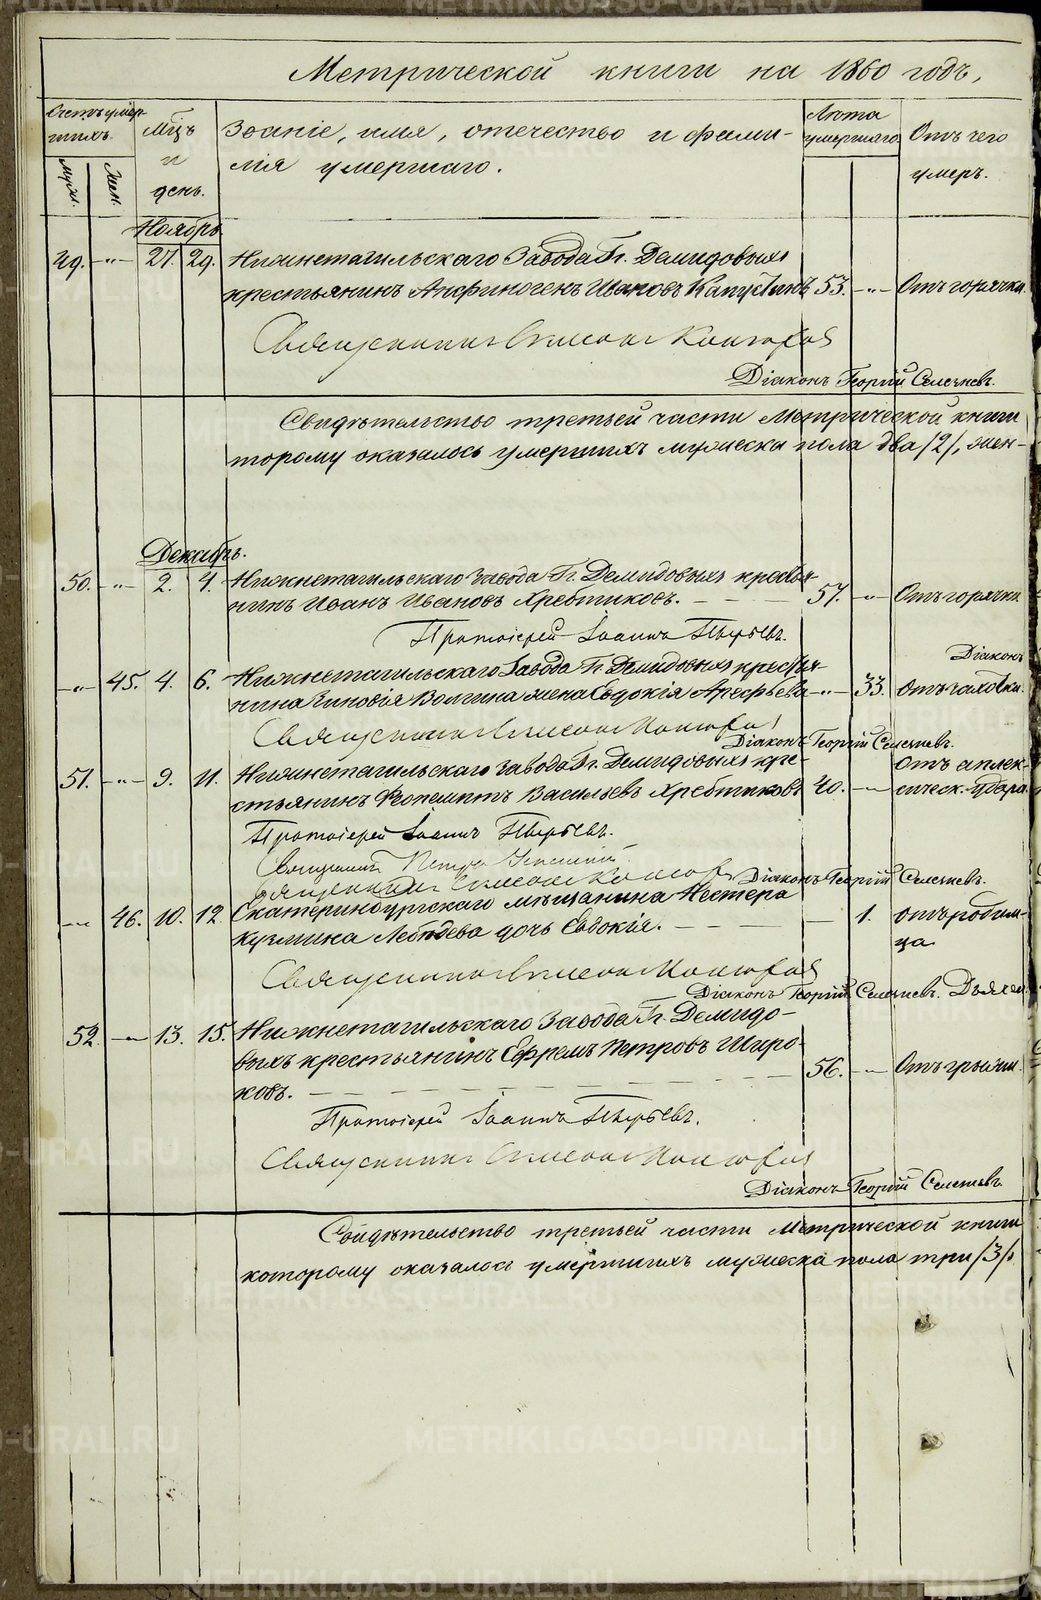 Метрической книги на 1860 годъ,
Счетъ умер-
шихъ.
Муж.
Жен.
Мцъ
и
день.
Званіе, имя, отечество и фами-
лія умершаго.
Лѣта
умершаго.
Отъ чего
умеръ.
Ноябрь
49. -"- 27. 29. Нижнетагильскаго Завода Гг. Демидовыхъ
крестьянинъ Анфиногенъ Ивановъ Капустинъ 53. -"- Отъ горячки.
Священникъ Симеонъ
Діаконъ Георгій Селезневъ.
Свидѣтельство третьей части Метрической книги
торому оказалось умершихъ мужеска пола два /2/, жен-
Декабрь.
50. -"- 2. 4. Нижнетагильскаго Завода Гг. Демидовыхъ крестья-
нинъ Иванъ Ивановъ Хребтиковъ. 57. -"- Отъ горячки
Протоіерей Іоаннъ
Діаконъ
-"- 45. 4. 6. Нижнетагильскаго Завода Гг. Демидовыхъ крестья-
нина Зиновія Волгина жена Евдокія Арефьева -"- 33. Отъ чахотки.
Священникъ Симеонъ
Діаконъ Георгій Селезневъ.
51. -"- 9. 11. Нижнетагильскаго Завода Гг. Демидовыхъ кре-
стьянинъ Васильевъ Хребтиковъ 40. -"- Отъ аплек-
сическ. удара.
Протоіерей Іоаннъ
Священникъ Петръ
Священникъ Симеонъ
Діаконъ Георгій Селезневъ.
-"- 46. 10. 12. Екатеринбургскаго мѣщанина Нестера
Кузмина Лебедева дочь Евдокія. 1. отъ родим-
ца.
Священникъ Симеонъ
Діаконъ Георгій Селезневъ.
52. -"- 13. 15. Нижнетагильскаго Завода Гг. Демидо-
выхъ крестьянинъ Ефремъ Петровъ Широ-
ковъ. 56. -"- Отъ грыжи.
Протоіерей Іоаннъ
Священникъ Симеонъ
Діаконъ Георгій Селезневъ
Свидѣтельство третьей части Метрической книги
которому оказалось умершихъ мужеска пола три /3/,
METRIKI.GASO-URAL.RU